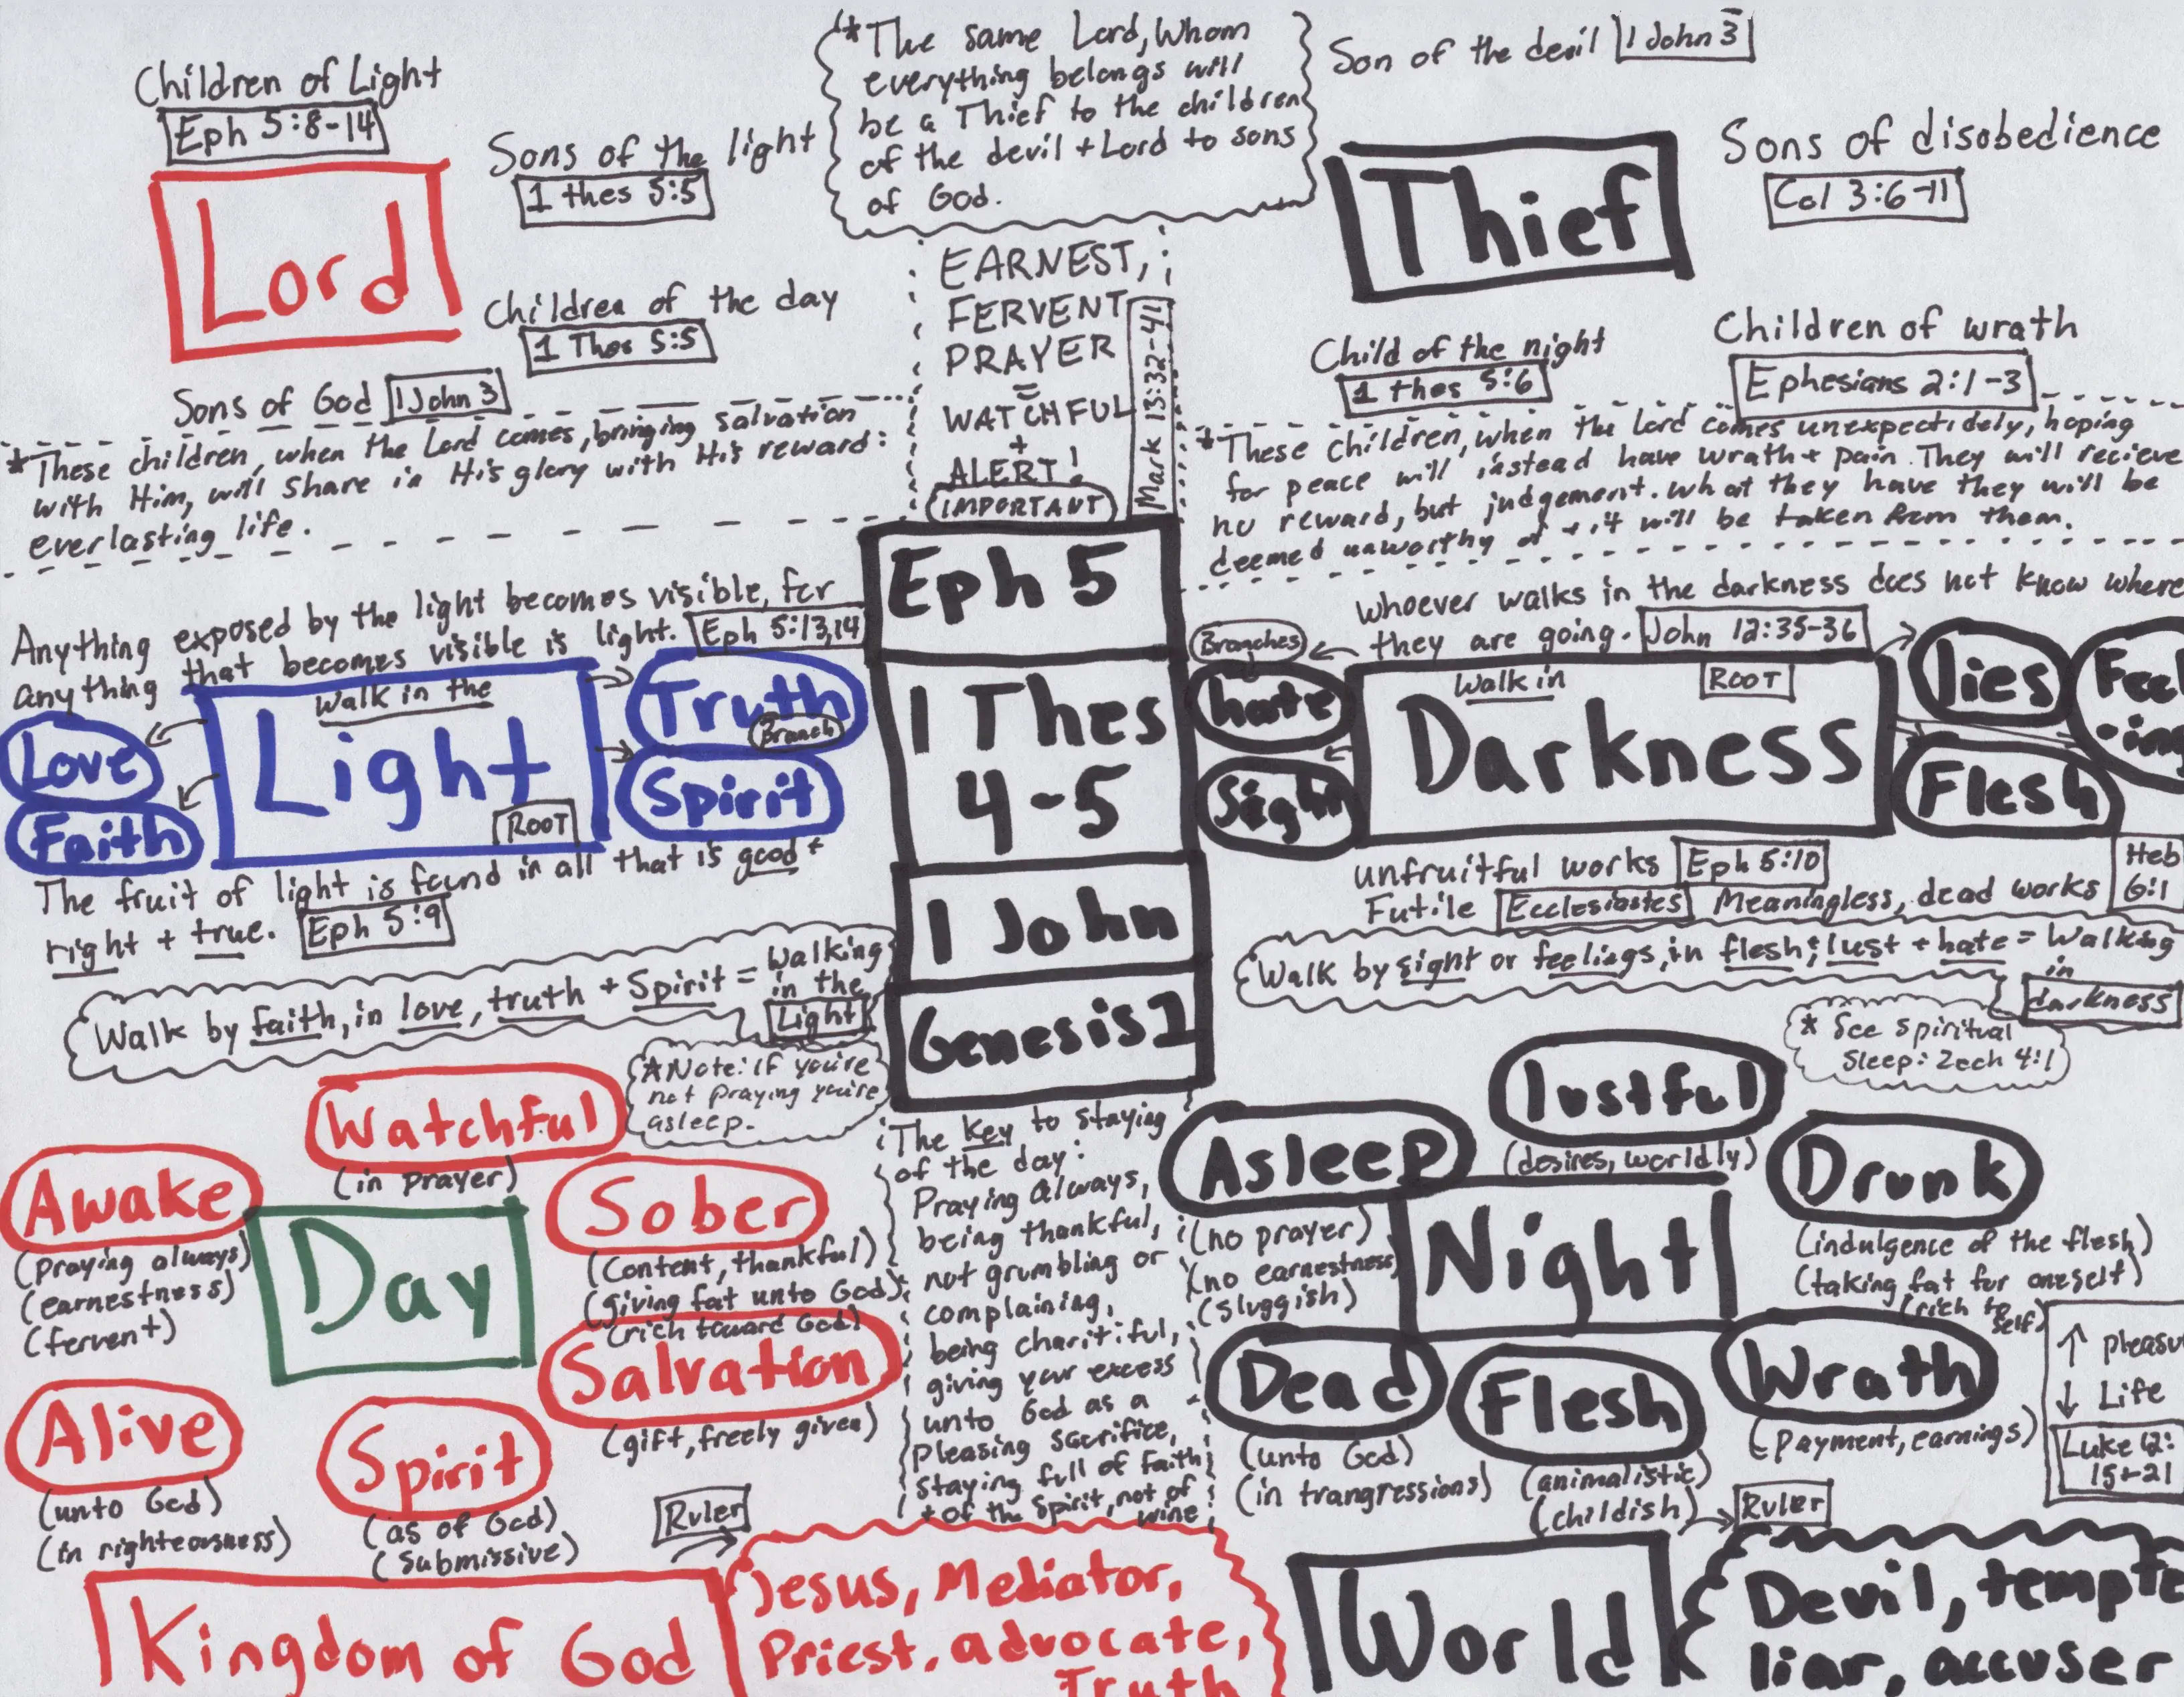 Children of Light
Eph 5:8-14
Lord
Sons of the light
1 thes 5:5
Children of the day
1 Thes 5:5
Sons of God 1 John 3
*These children, when the Lord comes, bringing salvation
with Him, will share in His glory with His reward:
everlasting life.
*The same Lord, Whom
everything belongs will
be a Thief to the children
of the devil + Lord to sons
of God.
EARNEST,
FERVENT
PRAYER
=
WATCHFUL
+
ALERT!
IMPORTANT
Mark 13:32-41
Son of the devil 1 John 3
Thief
Sons of disobedience
Col 3:6-11
Child of the night
1 thes 5:6
Children of wrath
Ephesians 2:1-3
*These children, when the Lord comes unexpectidely, hoping
for peace will instead have wrath + pain. They will recieve
no reward, but judgement. What they have they will be
deemed unworthy of + it will be taken from them.
Eph 5
1 Thes
4-5
1 John
Genesis 1
Anything exposed by the light becomes visible, for
anything that becomes visible is light. Eph 5:13,14
Walk in the
Light
ROOT
Love
Faith
Truth
Branch
Spirit
The fruit of light is found in all that is good +
right + true. Eph 5:9
Walk by faith, in love, truth + Spirit = Walking
in the
Light
Whoever walks in the darkness does not know where
they are going. John 12:35-36
Branches
hate
Sight
Walk in
ROOT
Darkness
lies
Feel
-ing
Flesh
unfruitful works Eph 5:10
Futile Ecclesiastes Meaningless, dead works
Heb
6:1
Walk by sight or feelings, in flesh; lust + hate = Walking
in
darkness
* See spiritual
Sleep: Zech 4:1
*Note: if you're
not praying you're
asleep.
Watchful
(in prayer)
Awake
(praying always)
(earnestness)
(fervent)
Day
Sober
(content, thankful)
(giving fat unto God)
(rich toward God)
Salvation
(gift, freely given)
Alive
(unto God)
(in righteousness)
Spirit
(as of God)
(submissive)
The key to staying
of the day:
Praying always,
being thankful,
not grumbling or
complaining,
being charitiful,
giving your excess
unto God as a
pleasing sacrifice,
staying full of faith
+ of the spirit, not of
wine
Asleep
(no prayer)
(no earnestness)
(sluggish)
lustful
(desires, worldly)
Drunk
(indulgence of the flesh)
(taking fat for oneself)
(rich to
self)
Night
Dead
(unto God)
(in trangressions)
Flesh
(animalistic)
(childish)
Wrath
(payment, earnings)
↑ pleasu
↓ Life
Luke 12:
15-21
Ruler
Kingdom of God
Jesus, Mediator,
Priest, advocate,
Truth
Ruler
World
Devil, tempte
liar, accuser